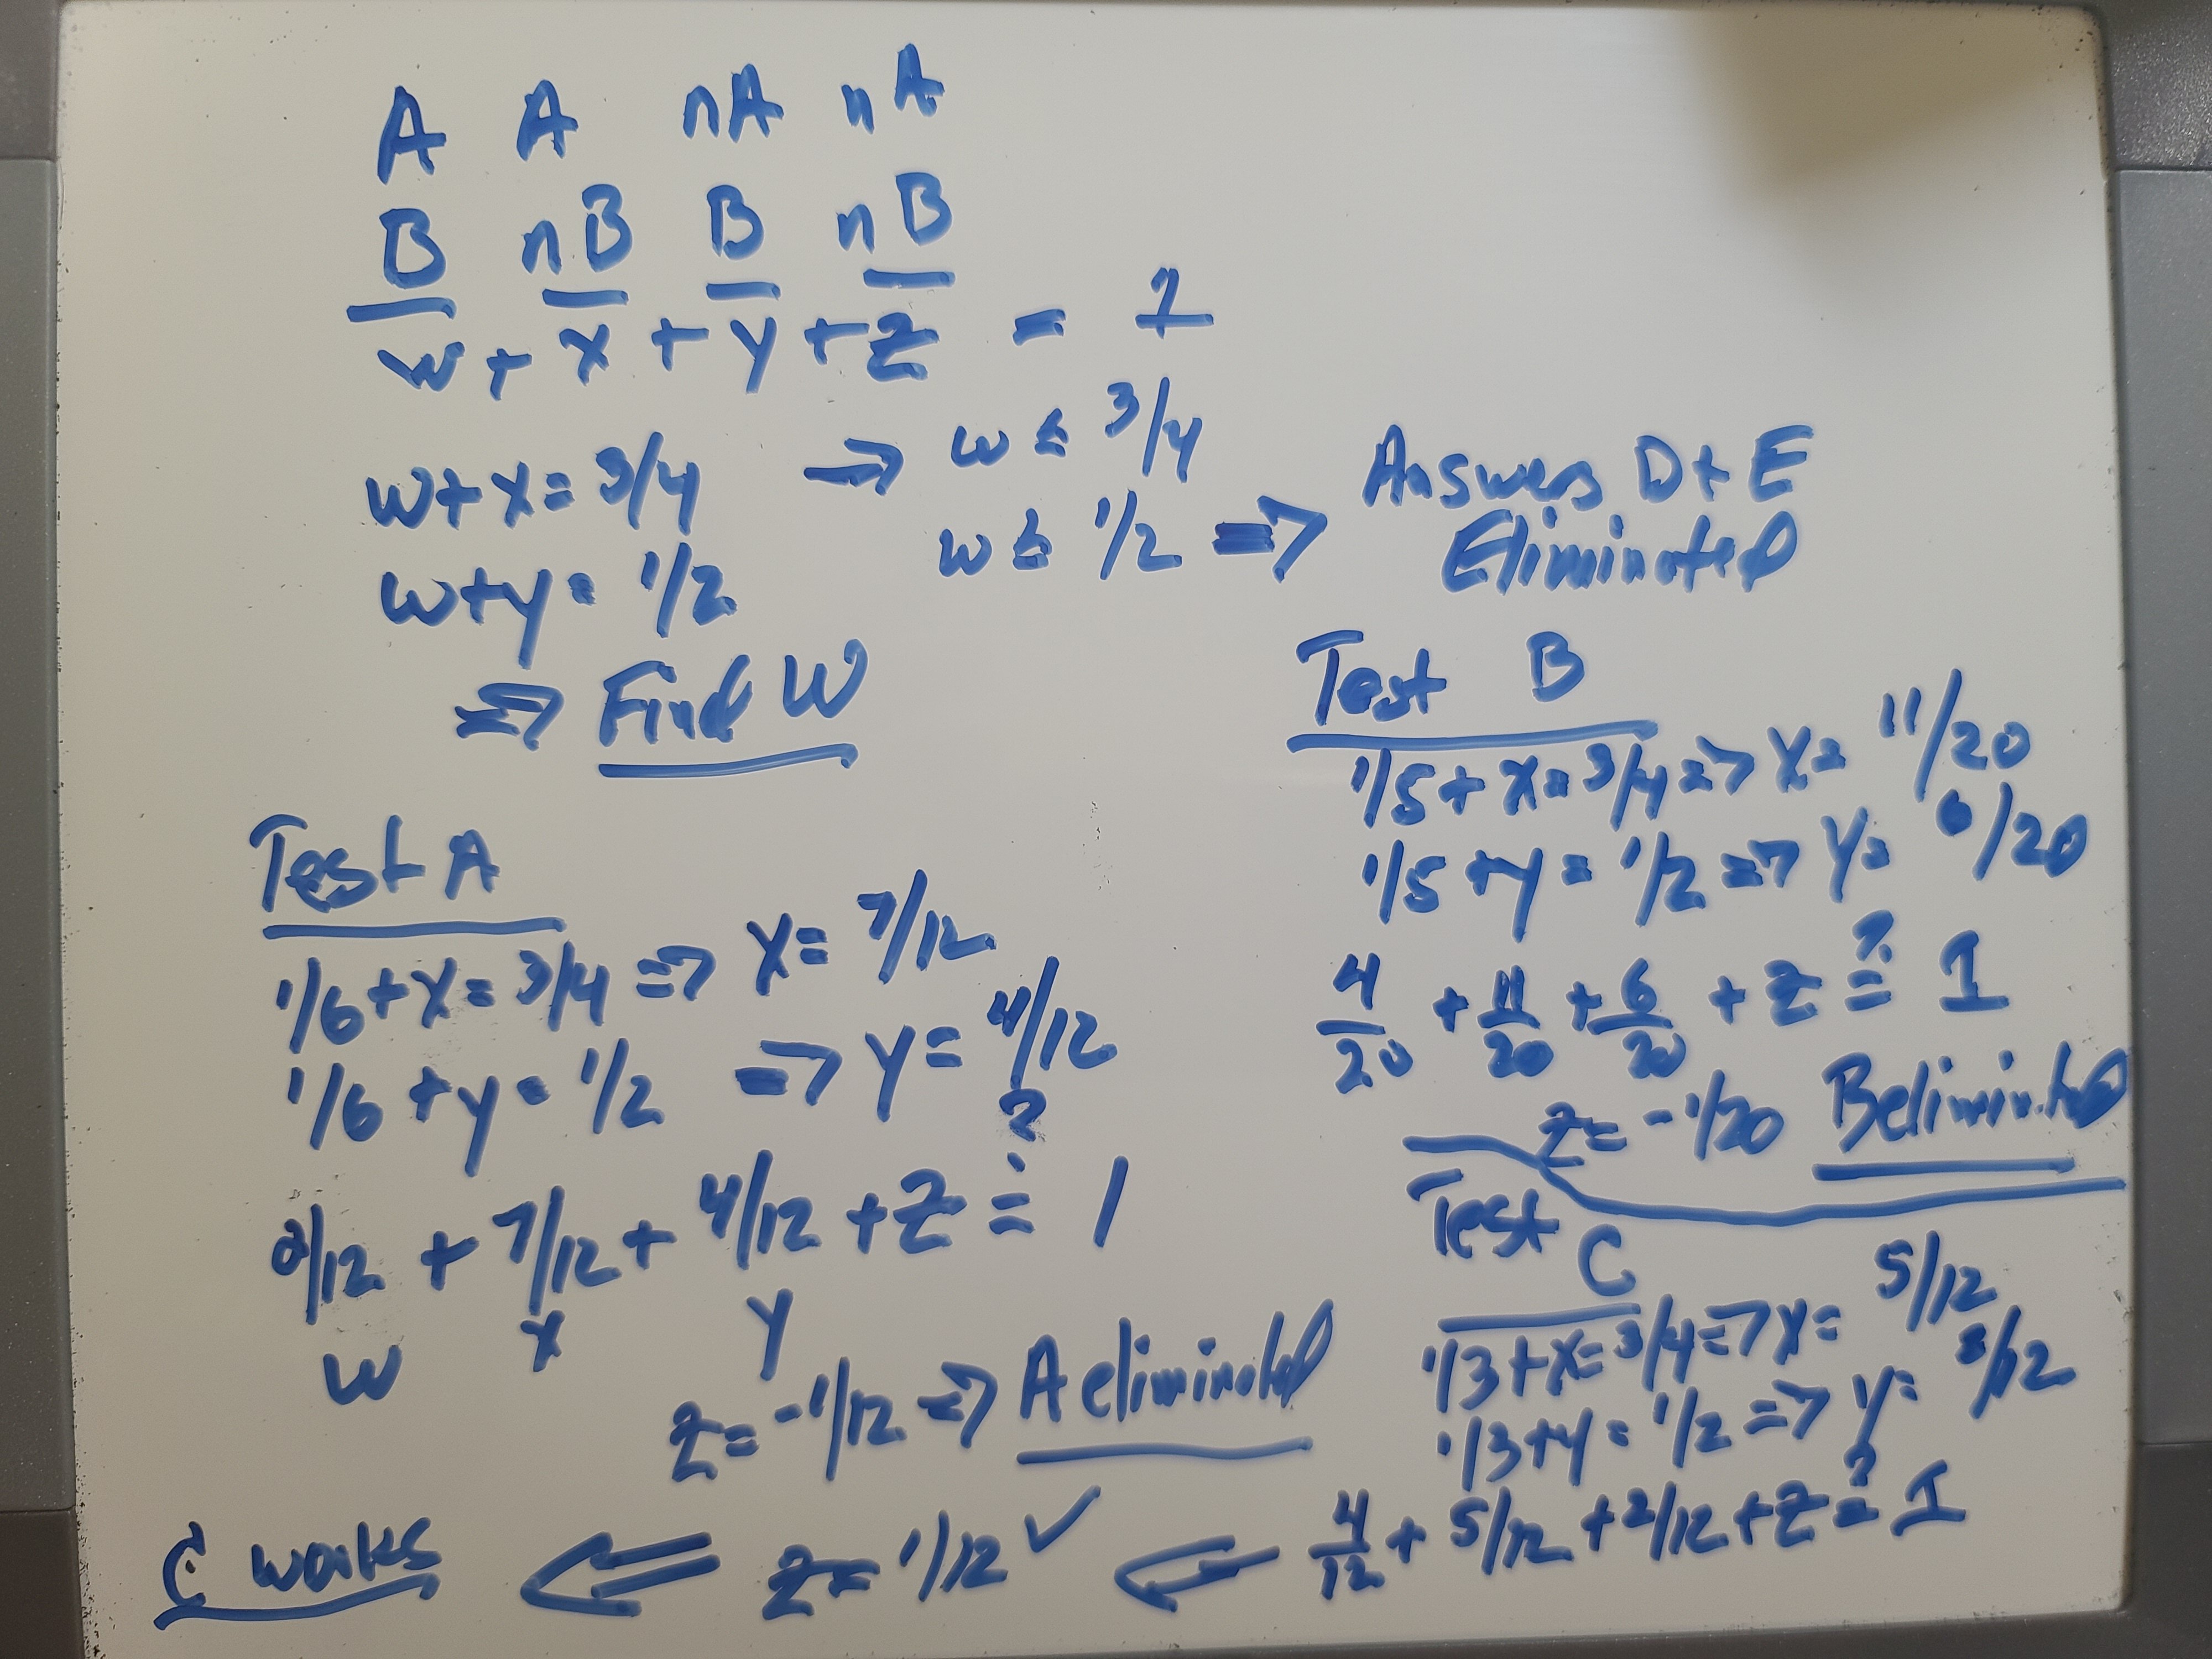 A A nA nA
B nB B nB
w + x + y + z = 1
w+x=3/4 => w ≤ 3/4
w+y=1/2 w ≤ 1/2 => Answers D+E
Eliminated
=> Find W
Test A
1/6+x=3/4 => x=7/12
1/6+y=1/2 => y=4/12
2/12 + 7/12 + 4/12 + z ?= 1
w x y
z=-1/12 => A eliminated
Test B
1/5+x=3/4 => x=11/20
1/5+y=1/2 => y=6/20
4/20 + 11/20 + 6/20 + z ?= 1
z=-1/20 B eliminated
Test C
1/3+x=3/4 => x=5/12
1/3+y=1/2 => y=2/12
4/12 + 5/12 + 2/12 + z ?= 1
<= z=1/12 ✓ <=
C works